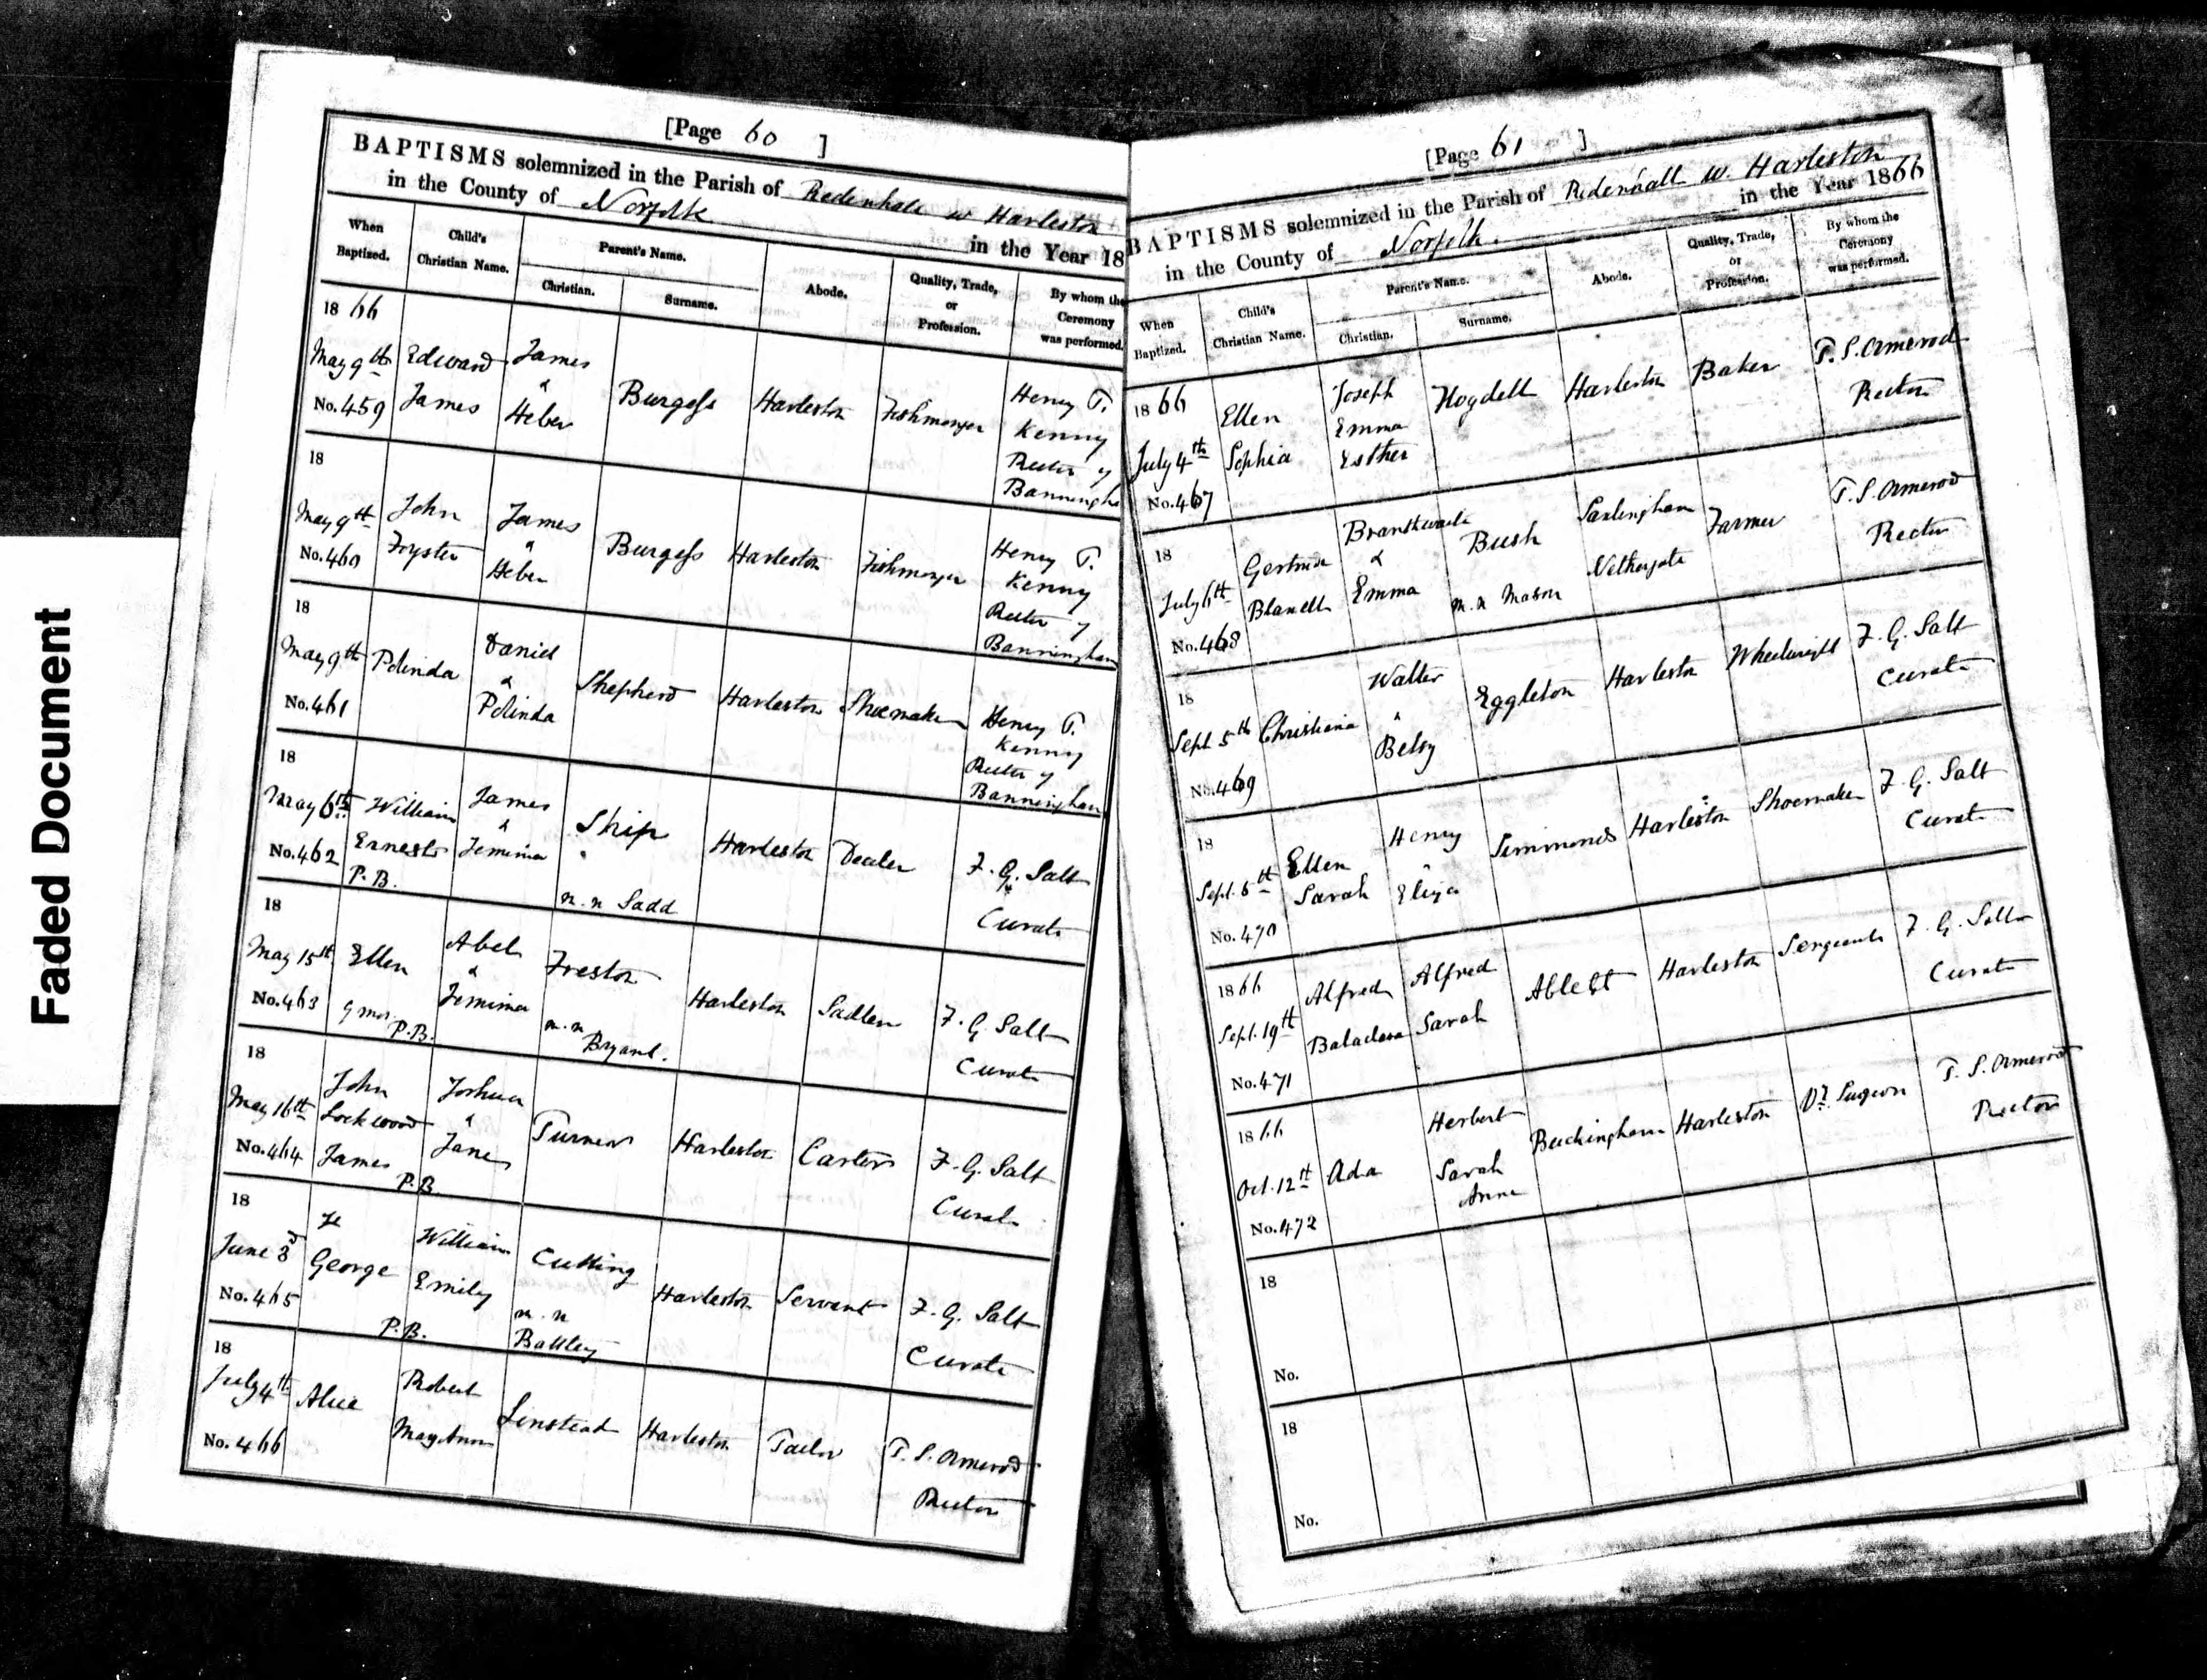 Faded Document
[Page 60 ]
BAPTISMS solemnized in the Parish of Redenhall w Harleston
in the County of Norfolk in the Year 18
When Baptized.
Child's Christian Name.
Parent's Name.
Christian.
Surname.
Abode.
Quality, Trade, or Profession.
By whom the Ceremony was performed.
1866
May 9th
No. 459
Edward
James
James
&
Heber
Burgess
Harleston
Fishmonger
Henry T.
Kenny
Rector of
18
May 9th
No. 460
John
Foyster
James
&
Heber
Burgess
Harleston
Fishmonger
Henry T.
Kenny
Rector of
Banningham
18
May 9th
No. 461
Polinda
Daniel
&
Polinda
Shepherd
Harleston
Shoemaker
Henry T.
Kenny
Rector of
Banningham
18
May 6th
No. 462
William
Ernest
P.B.
James
&
Jemima
Ship
n.n Sadd
Harleston
Dealer
F. G. Salt
Curate
18
May 15th
No. 463
Ellen
9 mos.
P.B.
Abel
&
Jemima
Freston
n.n
Bryant.
Harleston
Sadler
F. G. Salt
Curate
18
May 16th
No. 464
John
Lockwood
James
P.B.
Joshua
&
Jane
Turner
Harleston
Carter
F. G. Salt
Curate
18
June 3d
No. 465
George
P.B.
William
Emily
Cutting
n.n
Battley
Harleston
Servant
F. G. Salt
Curate
18
July 4th
No. 466
Alice
Robert
May Ann
Linstead
Harleston
Tailor
T. S. Ormerod
Rector
[Page 61 ]
BAPTISMS solemnized in the Parish of Redenhall w. Harleston
in the County of Norfolk. in the Year 1866
When Baptized.
Child's Christian Name.
Parent's Name.
Christian.
Surname.
Abode.
Quality, Trade, or Profession.
By whom the Ceremony was performed.
1866
July 4th
No. 467
Ellen
Sophia
Joseph
Emma
Esther
Harleston
Baker
T. S. Ormerod
Rector
18
July 6th
No. 468
Gertrude
Branthwaite
&
Emma
Bush
n.n Mason
Saxlingham
Nethergate
Farmer
T. S. Ormerod
Rector
18
Sept. 5th
No. 469
Christiana
Walter
&
Betsy
Eggleton
Harleston
Wheelwright
F. G. Salt
Curate
18
Sept. 5th
No. 470
Ellen
Sarah
Henry
&
Eliza
Simmonds
Harleston
Shoemaker
F. G. Salt
Curate
1866
Sept. 19th
No. 471
Alfred
Balaclava
Alfred
Sarah
Ablett
Harleston
Sergeant
F. G. Salt
Curate
1866
Oct. 12th
No. 472
Ada
Herbert
Sarah
Anne
Buckingham
Harleston
T. S. Ormerod
Rector
18
No.
18
No.